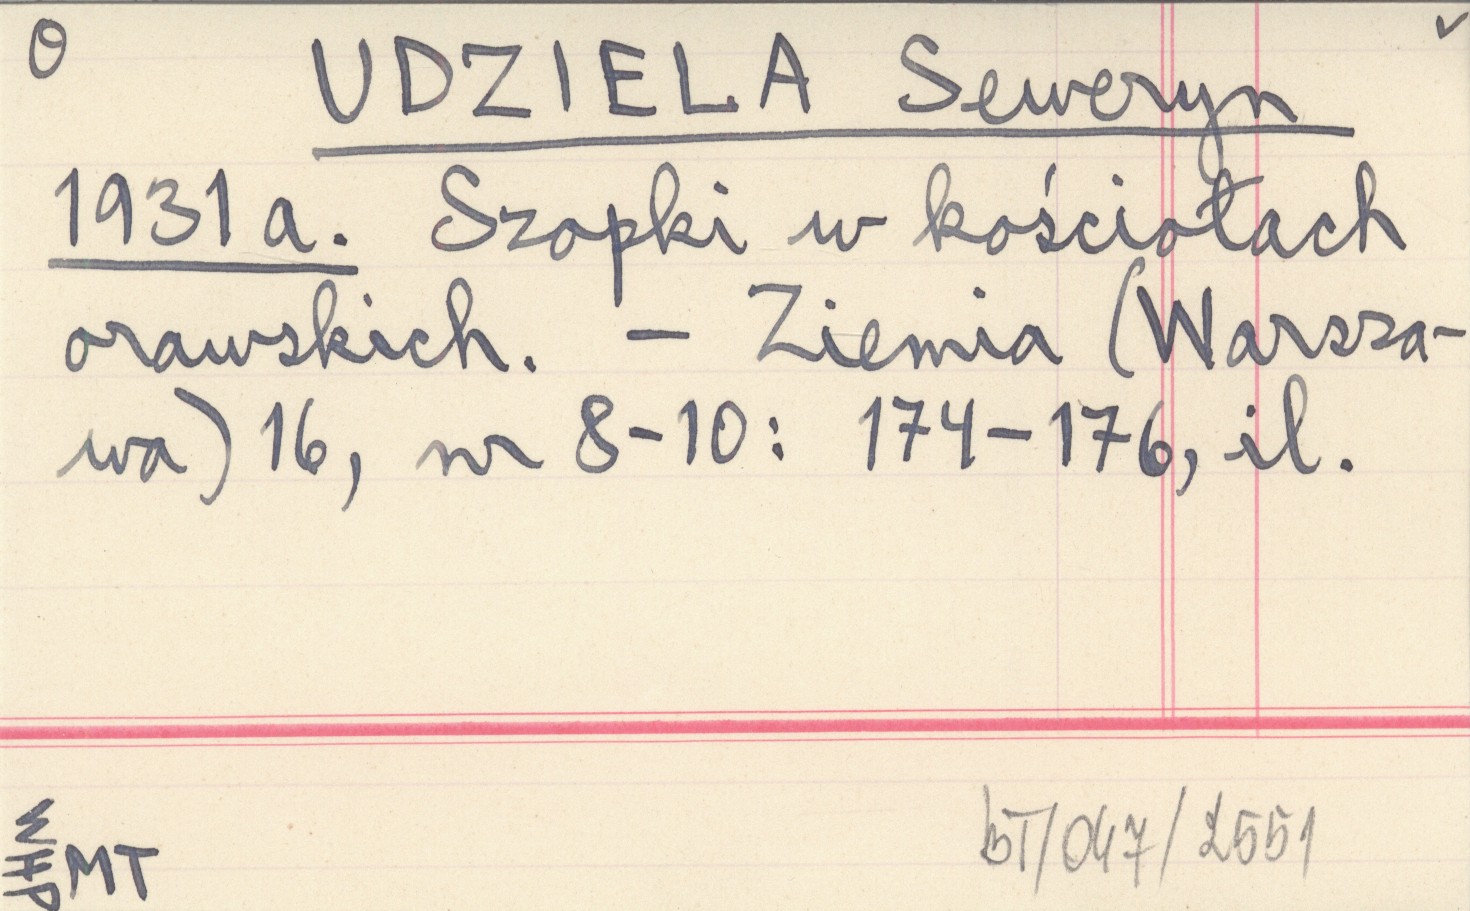 O UDZIELA Seweryn
1931a. Szopki w kościołach
orawskich. – Ziemia (Warsza-
wa) 16, nr 8-10: 174-176, il.
MT
bT/047/2551